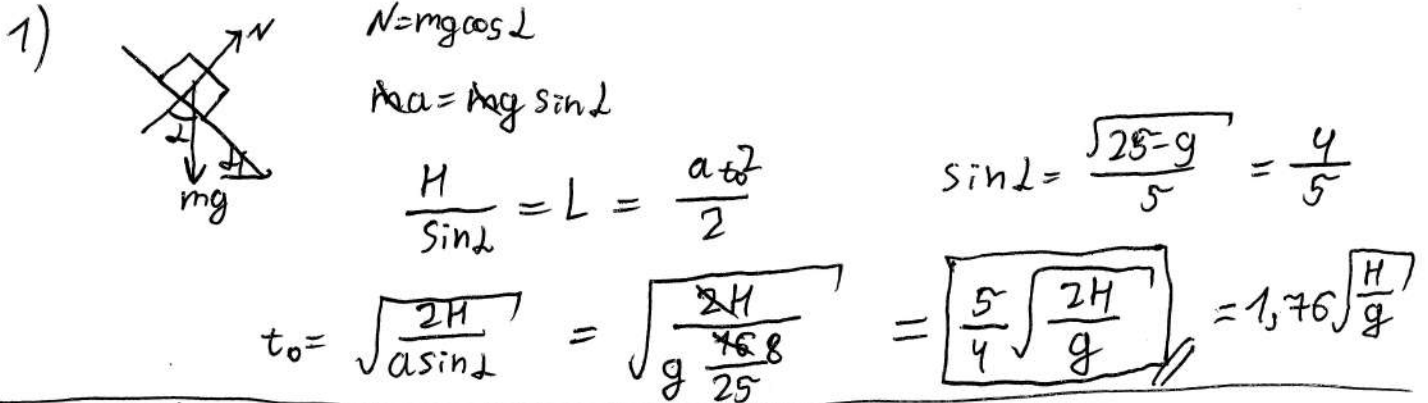 1)
N
α
α
mg
N=mg cos α
ma = mg sin α
H/sin α = L = a t₀²/2
sin α = √(25-9)/5 = 4/5
t₀ = √(2H/(a sin α)) = √(2H/(g 16 8/25)) = 5/4 √(2H/g) = 1,76 √(H/g)